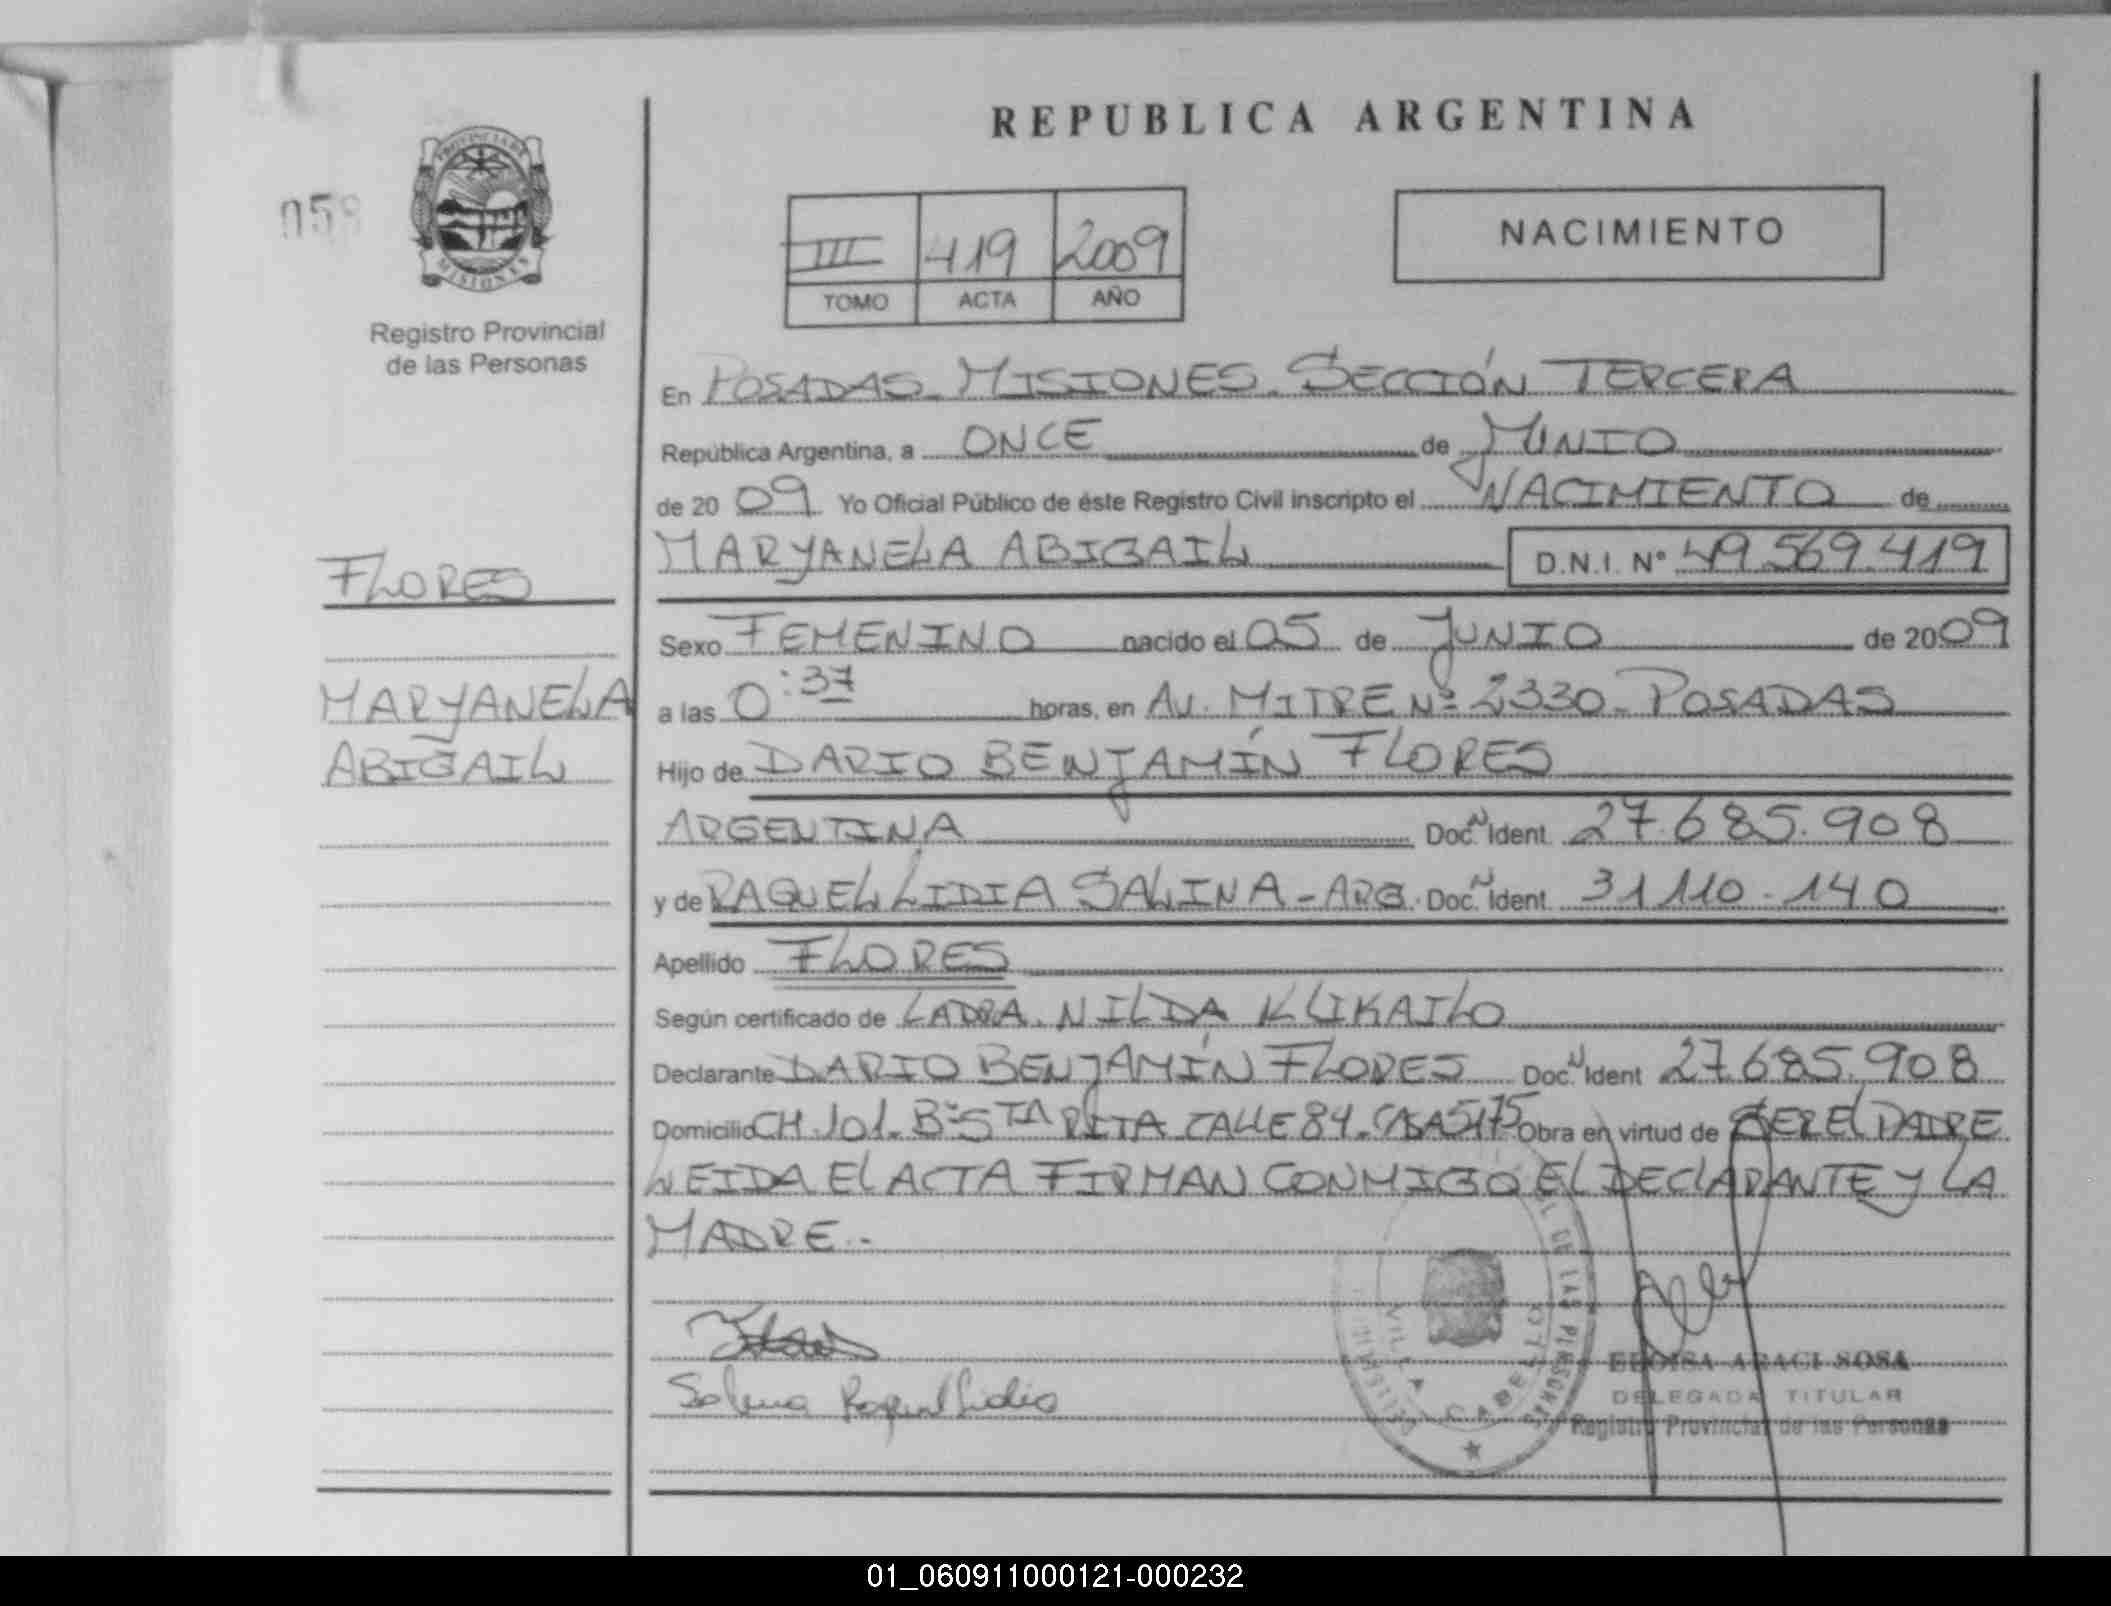 REPUBLICA ARGENTINA
PROVINCIA DE
MISIONES
Registro Provincial
de las Personas
III 419 2009
TOMO ACTA AÑO
NACIMIENTO
En POSADAS - MISIONES - SECCIÓN TERCERA
República Argentina, a ONCE de JUNIO
de 2009 Yo Oficial Público de éste Registro Civil inscripto el NACIMIENTO de
MARYANELA ABIGAIL D.N.I. Nº 49.569.419
FLORES
MARYANELA
ABIGAIL
Sexo FEMENINO nacido el 05 de JUNIO de 2009
a las 0:37 horas, en AV. MITRE Nº 2330 - POSADAS
Hijo de DARIO BENJAMÍN FLORES
ARGENTINA Doc. N Ident. 27.685.908
y de RAQUEL LIDIA SALINA - ARG. Doc. N Ident. 31.110.140
Apellido FLORES
Según certificado de LA DRA. NILDA KLIKAILO
Declarante DARIO BENJAMÍN FLORES Doc. N Ident 27.685.908
Domicilio CH. 101. Bº STA RITA CALLE 84 - CASA 5475 Obra en virtud de SER EL PADRE
LEIDA EL ACTA FIRMAN CONMIGO EL DECLARANTE Y LA
MADRE.-
Salina Raquel Lidia
VILLA CABELLO
ELOISA ARACI SOSA
DELEGADA TITULAR
Registro Provincial de las Personas
01_060911000121-000232